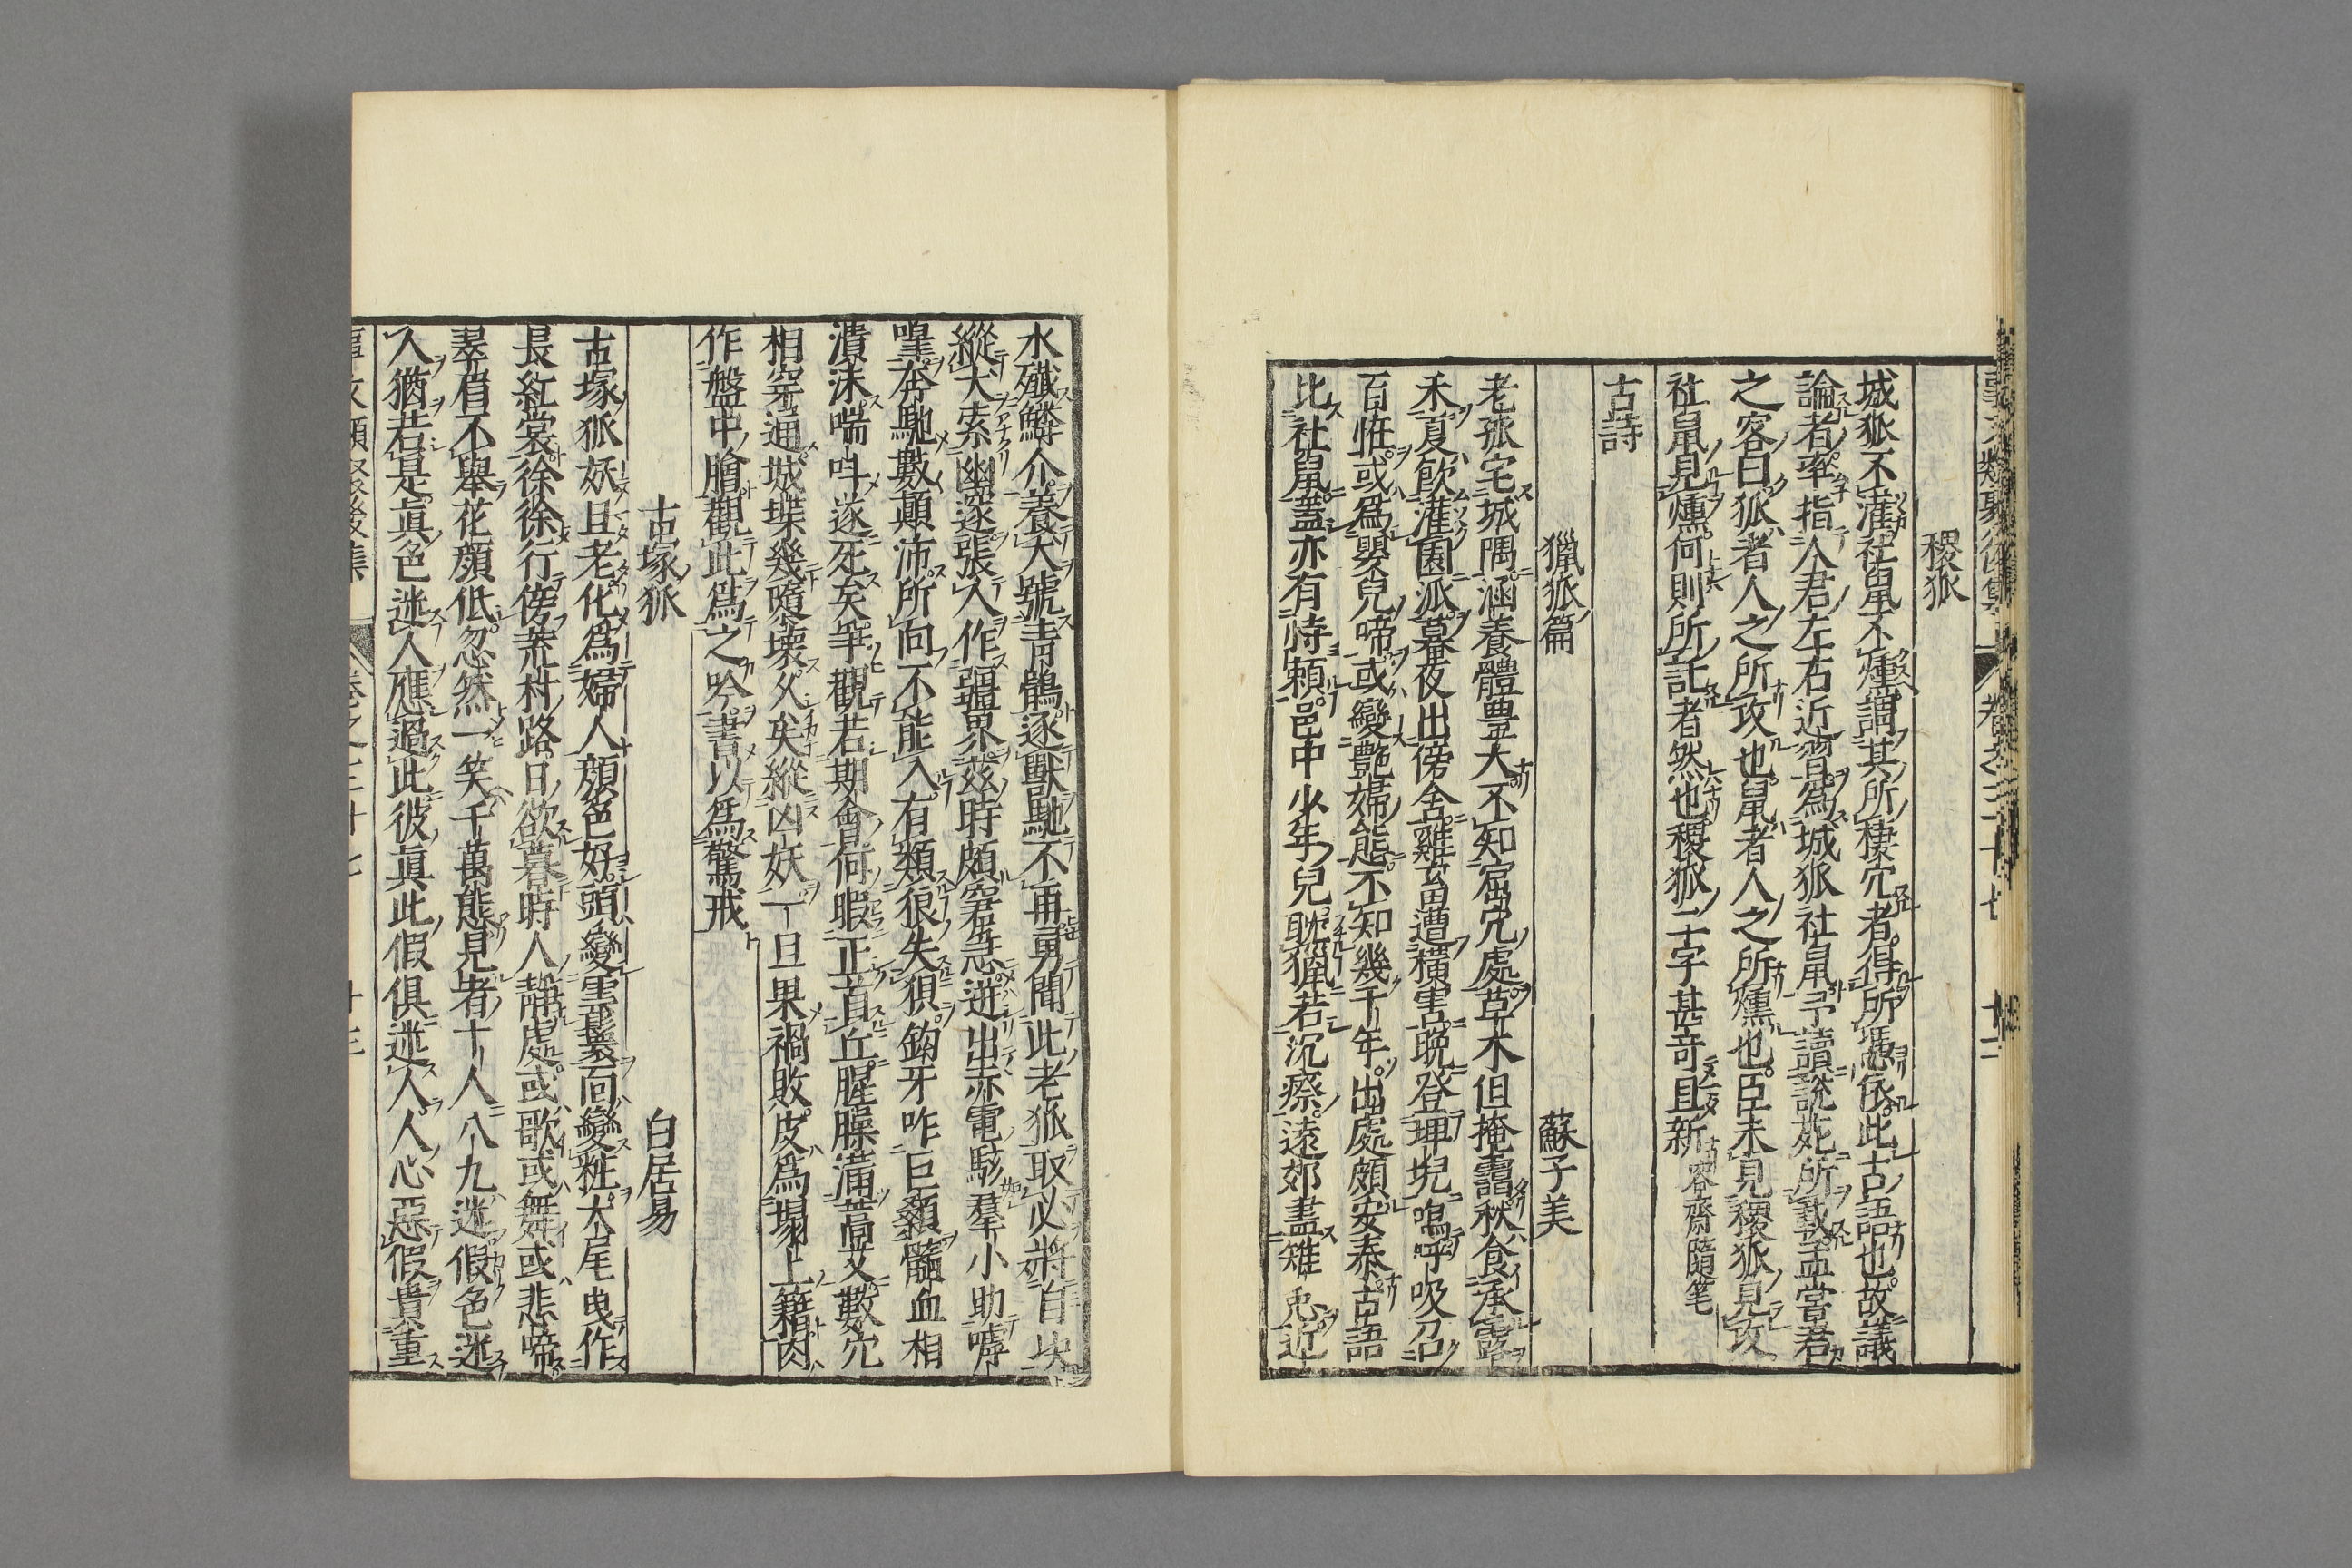 稷狐
城狐不灌社鼠不燻謂其所棲穴者得所憑依此古語也故議
論者率指人君左右近習爲城狐社鼠予讀說苑所載孟嘗君
之客曰狐者人之所攻也鼠者人之所燻也臣未見稷狐見攻
社鼠見燻何則所託者然也稷狐二字甚奇且新 容齋隨笔
古詩
獵狐篇 蘇子美
老狐宅城隅涵養體豊大不知窟穴處草木但掩靄秋食承露
禾夏飮灌園派暮夜出傍舍雞畜遭橫害晩登埤堄鳴呼吸召
百恠或爲嬰兒啼或變艶婦態不知幾千年出處頗安泰古語
比社鼠蓋亦有恃賴邑中少年兒耽獵若沉瘵遠郊盡雉兎近
水殲鱗介養犬號靑鶻逐獸馳不再勇聞此老狐取必將自快
縱犬索幽邃張人作疆界茲時頗窘急迸出赤電駭羣小助嘑
嘷奔馳數顚沛所向不能入有類狼失狽鈎牙咋巨顙髓血相
潰沫喘呌遂死矣爭觀若期會何暇正首丘腥臊滿蒿艾數穴
相穿通城堞幾隳壊久矣縱凶妖一旦果禍敗皮爲榻上藉肉
作盤中膾觀此爲之吟書以爲驚戒
古塚狐 白居易
古塚狐妖且老化爲婦人顔色好頭變雲鬟面變粧大尾曳作
長紅裳徐徐行傍荒村路日欲暮時人靜處或歌或舞或悲啼
翠眉不舉花顔低忽然一笑千萬態見者十人八九迷假色迷
人猶若是眞色迷人應過此彼眞此假倶迷人人心惡假貴重